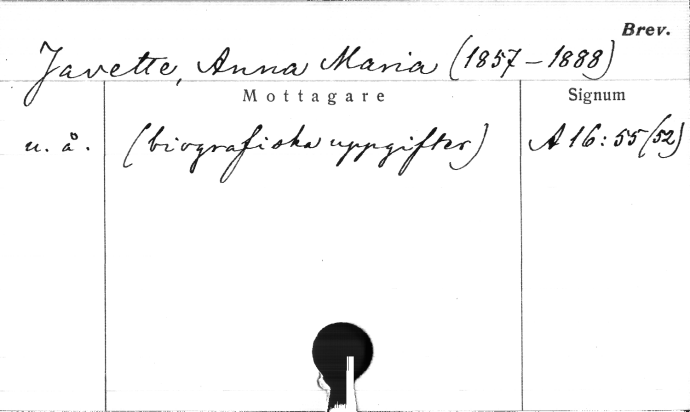 Brev.
Javette, Anna Maria (1857-1888)
Mottagare Signum
u. å. (biografiska uppgifter) A 16:55(52)